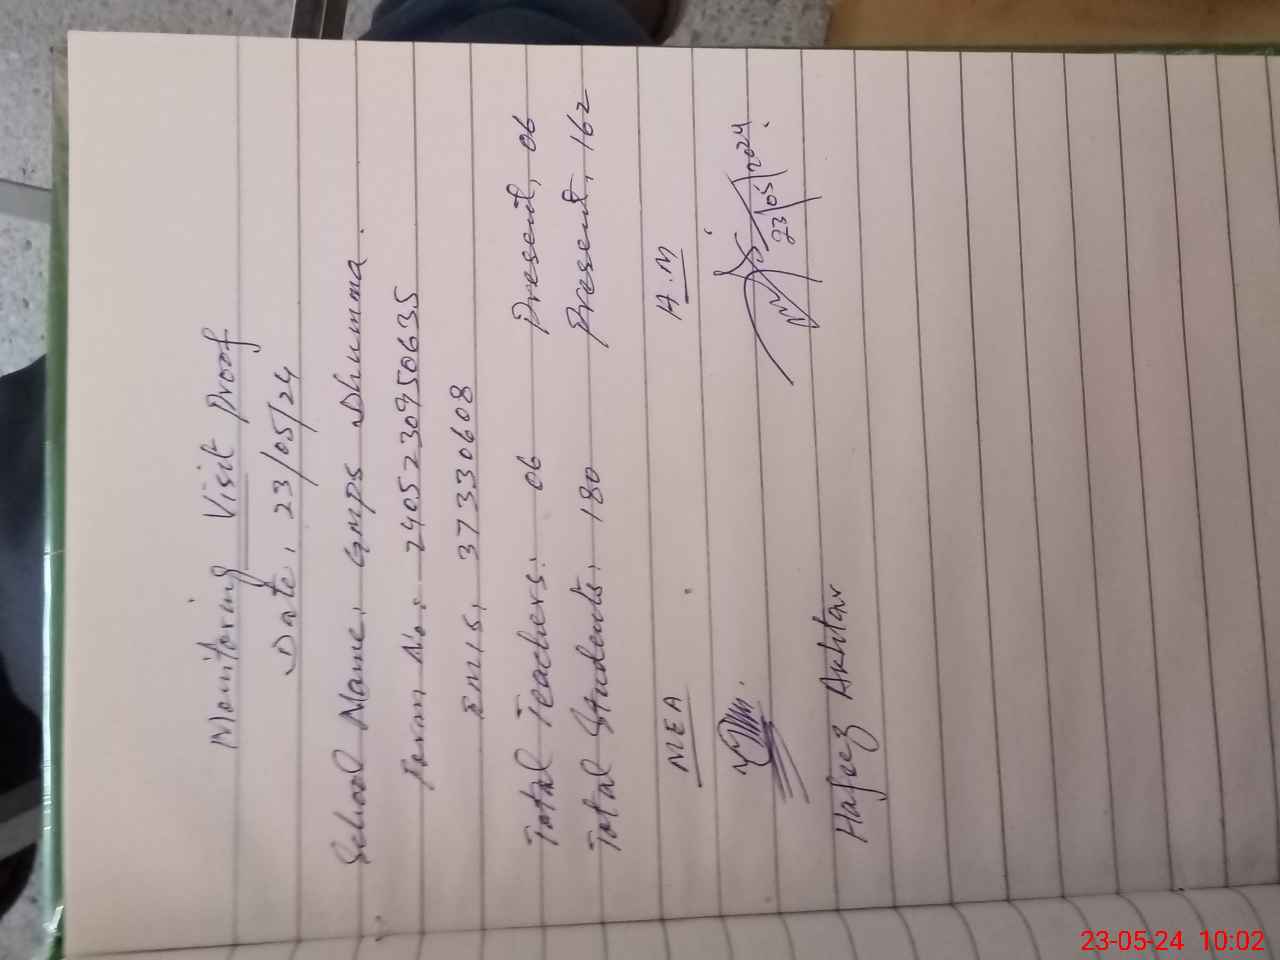 Monitoring Visit Proof
Date, 23/05/24
School Name, GMPS Dhumma.
Form No: 24052309450635
EMIS, 37330608
Total Teachers: 06 Present, 06
Total Students, 180 Present, 162
MEA A.M
23/05/2024
Hafeez Akhtar
23-05-24 10:02